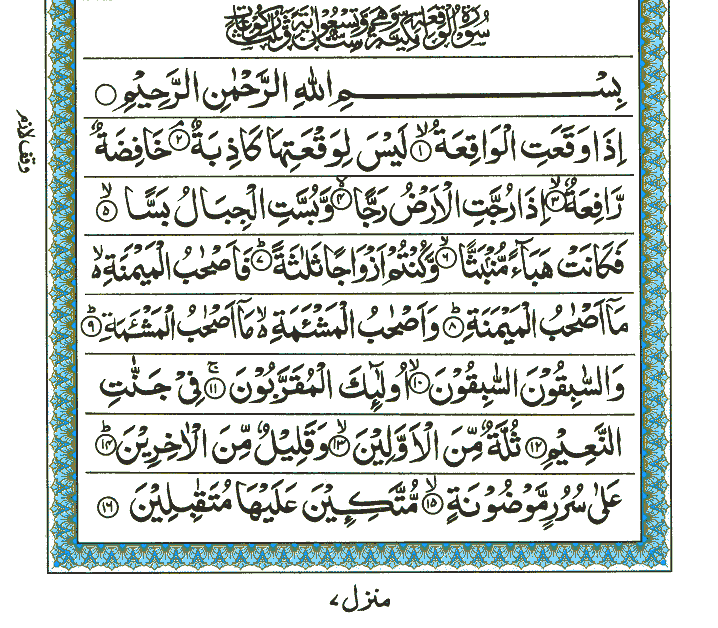 سُوْرَةُ الْوَاقِعَةِ مَكِّيَّةٌ وَّهِيَ سِتٌّ وَّتِسْعُوْنَ اٰيَةً وَّثَلٰثُ رُكُوْعَاتٍ
بِسْمِ اللهِ الرَّحْمٰنِ الرَّحِيْمِ
اِذَا وَقَعَتِ الْوَاقِعَةُ ۙ﴿۱﴾ لَيْسَ لِوَقْعَتِهَا كَاذِبَةٌ ۘ﴿۲﴾ خَافِضَةٌ
وقف لازم
رَّافِعَةٌ ۙ﴿۳﴾ اِذَا رُجَّتِ الْاَرْضُ رَجًّا ۙ﴿۴﴾ وَّبُسَّتِ الْجِبَالُ بَسًّا ۙ﴿۵﴾
فَكَانَتْ هَبَآءً مُّنْۢبَثًّا ۙ﴿۶﴾ وَّكُنْتُمْ اَزْوَاجًا ثَلٰثَةً ؕ﴿۷﴾ فَاَصْحٰبُ الْمَيْمَنَةِ ۙ۬
مَاۤ اَصْحٰبُ الْمَيْمَنَةِ ؕ﴿۸﴾ وَاَصْحٰبُ الْمَشْـَٔمَةِ ۙ۬ مَاۤ اَصْحٰبُ الْمَشْـَٔمَةِ ؕ﴿۹﴾
وَالسّٰبِقُوْنَ السّٰبِقُوْنَ ۙ﴿۱۰﴾ اُولٰٓئِكَ الْمُقَرَّبُوْنَ ۚ﴿۱۱﴾ فِيْ جَنّٰتِ
النَّعِيْمِ ﴿۱۲﴾ ثُلَّةٌ مِّنَ الْاَوَّلِيْنَ ۙ﴿۱۳﴾ وَقَلِيْلٌ مِّنَ الْاٰخِرِيْنَ ؕ﴿۱۴﴾
عَلٰى سُرُرٍ مَّوْضُوْنَةٍ ۙ﴿۱۵﴾ مُّتَّكِـِٕيْنَ عَلَيْهَا مُتَقٰبِلِيْنَ ﴿۱۶﴾
منزل ۷